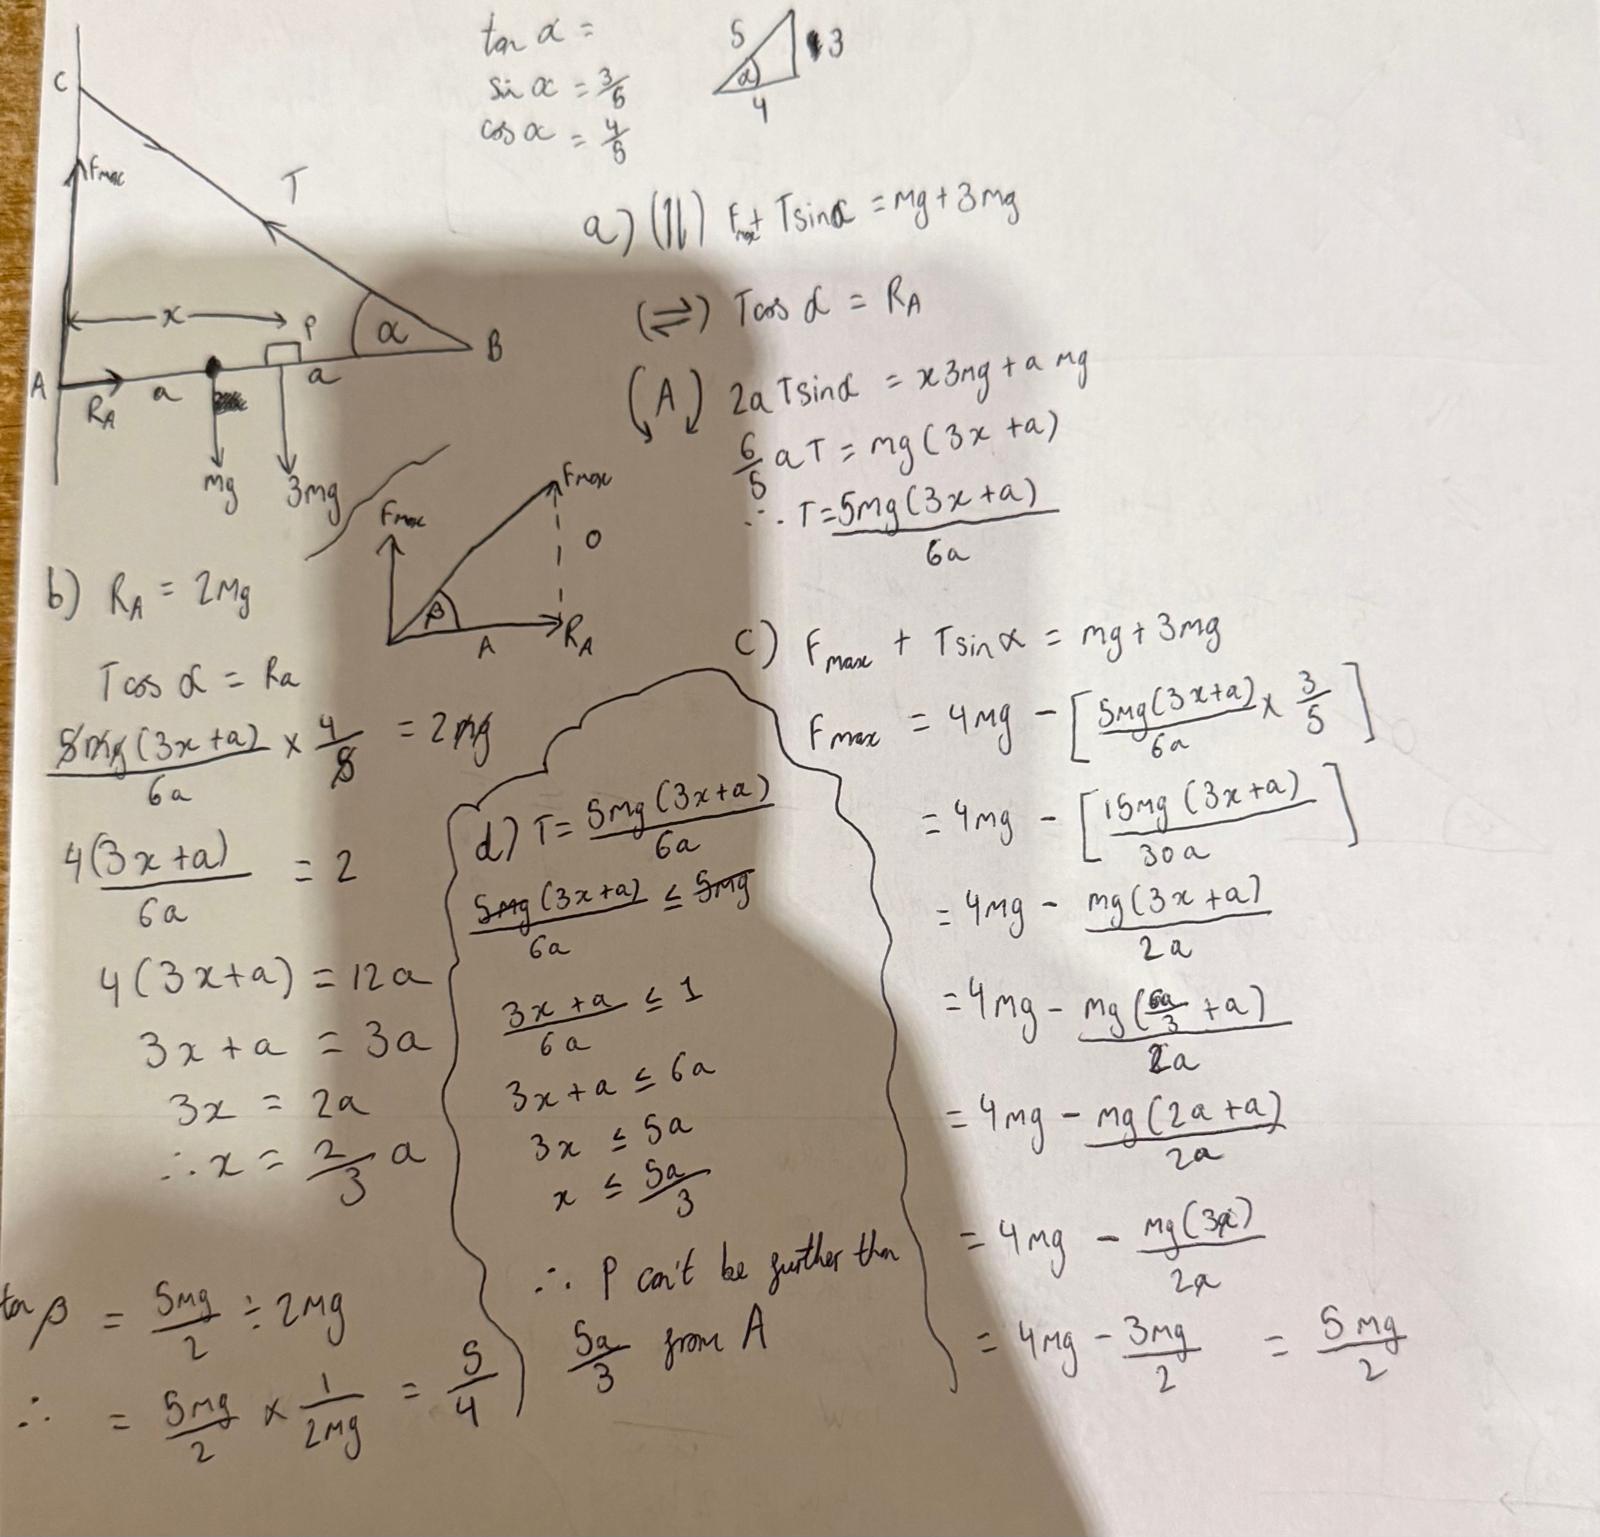 tan α =
sin α = 3/5
cos α = 4/5
5
3
α
4
C
Fmax
T
x
P
α
B
A
RA
a
a
mg
3mg
a) (↑↓) Fmax + Tsinα = mg + 3mg
(⇌) Tcos α = RA
(A) 2aTsinα = x3mg + a mg
6/5 aT = mg(3x + a)
∴ T = 5mg(3x + a)/6a
Fmax
Fmax
O
β
A
RA
b) RA = 2mg
Tcos α = Ra
5mg(3x + a)/6a × 4/5 = 2mg
4(3x + a)/6a = 2
4(3x + a) = 12a
3x + a = 3a
3x = 2a
∴ x = 2/3 a
tan β = 5mg/2 ÷ 2mg
∴ = 5mg/2 × 1/2mg = 5/4
c) Fmax + Tsin α = mg + 3mg
Fmax = 4mg - [5mg(3x + a)/6a × 3/5]
= 4mg - [15mg(3x + a)/30a]
= 4mg - mg(3x + a)/2a
= 4mg - mg(6a/3 + a)/2a
= 4mg - mg(2a + a)/2a
= 4mg - mg(3a)/2a
= 4mg - 3mg/2 = 5mg/2
d) T = 5mg(3x + a)/6a
5mg(3x + a)/6a ≤ 5mg
3x + a/6a ≤ 1
3x + a ≤ 6a
3x ≤ 5a
x ≤ 5a/3
∴ P can't be further than
5a/3 from A